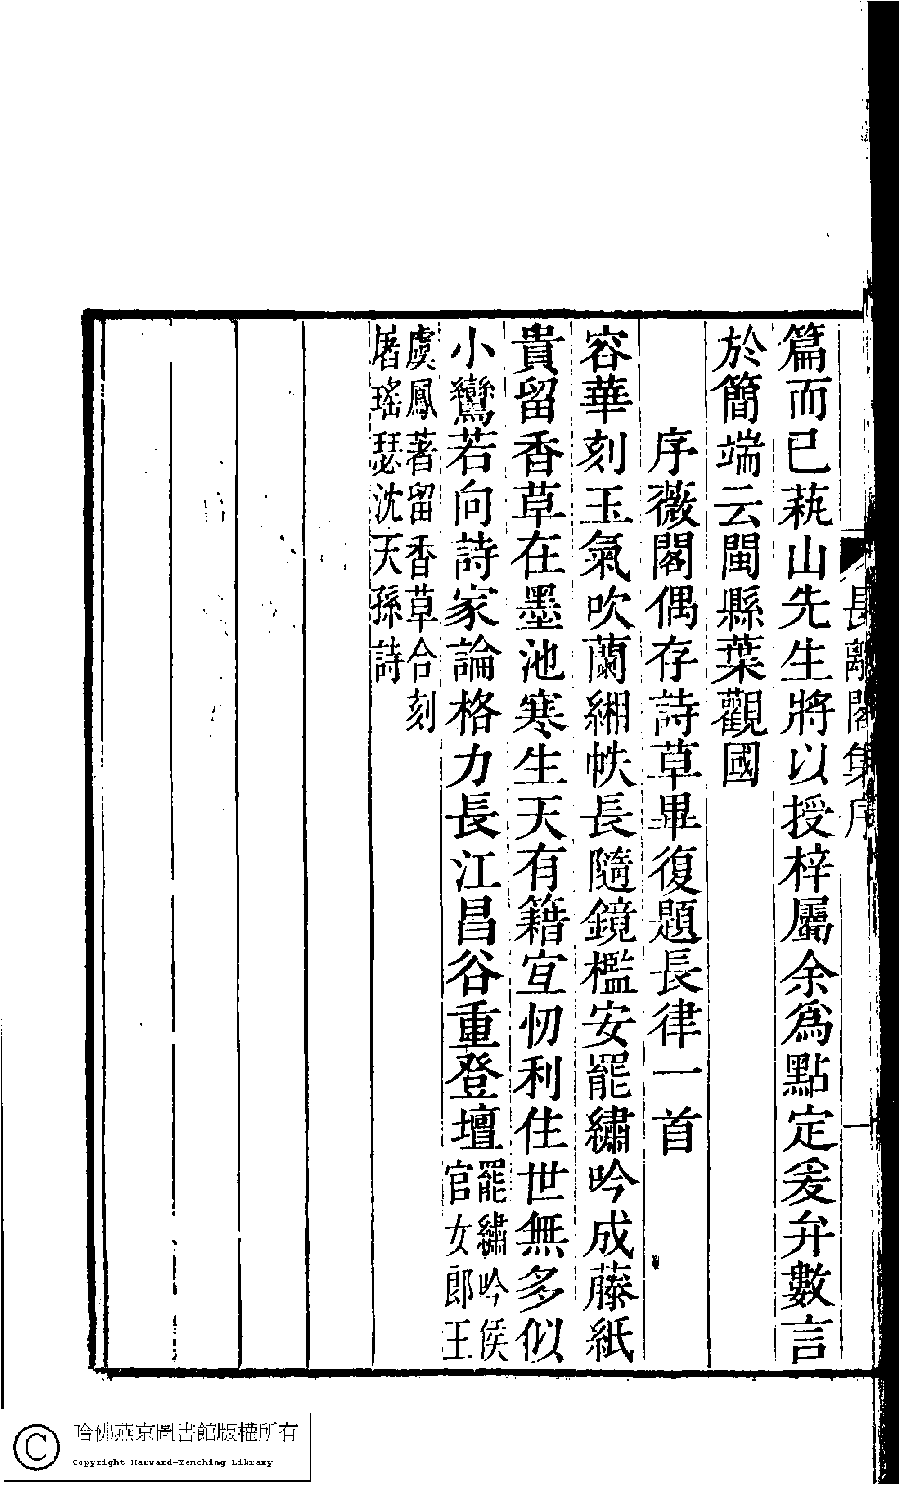 長離閣集序
篇而已蓺山先生將以授梓屬余為點定爰弁數言
於簡端云閩縣葉觀國
序薇閣偶存詩草畢復題長律一首
容華刻玉氣吹蘭緗帙長隨鏡檻安罷繡吟成藤紙
貴留香草在墨池寒生天有籍宜忉利住世無多似
小鸞若向詩家論格力長江昌谷重登壇罷繡吟侯
官女郎王
虞鳳著留香草合刻
屠瑤瑟沈天孫詩
哈佛燕京圖書館版權所有
Copyright Harvard-Yenching Library